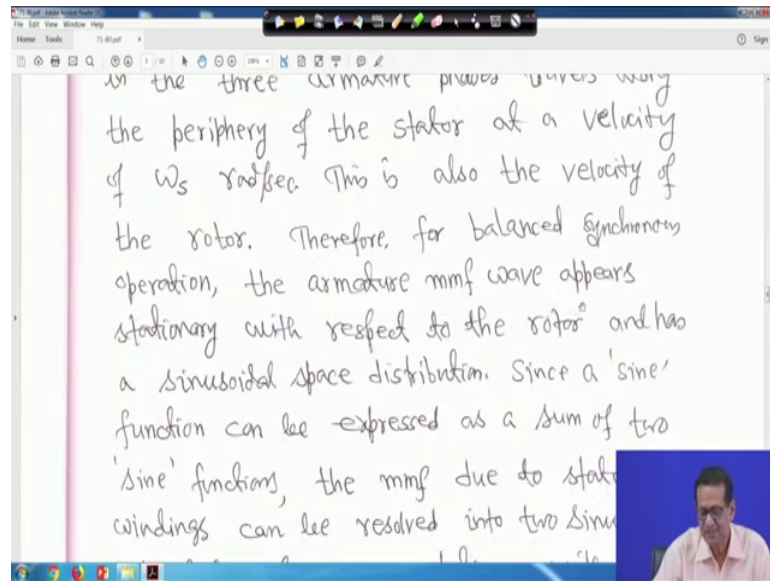 71-80.pdf - Adobe Acrobat Reader DC
File Edit View Window Help
Home Tools 71-80.pdf × Sign
in the three armature phases travels along
the periphery of the stator at a velocity
of ωs rad/sec. This is also the velocity of
the rotor. Therefore, for balanced synchronous
operation, the armature mmf wave appears
stationary with respect to the rotor and has
a sinusoidal space distribution. Since a 'sine'
function can be expressed as a sum of two
'sine' functions, the mmf due to stat
windings can be resolved into two sinu